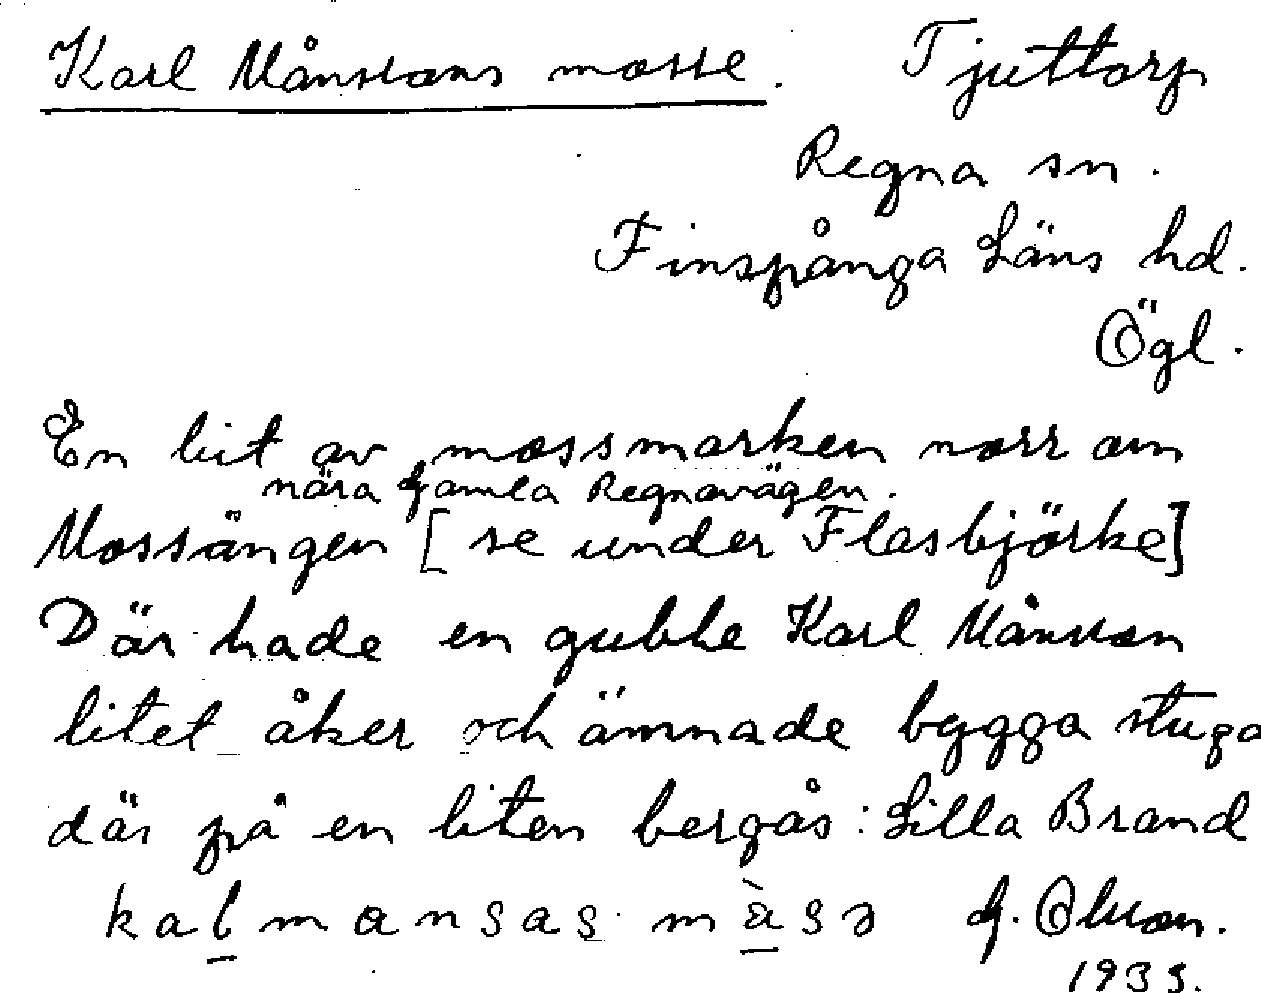 Karl Månssons mosse. Tjuttorp
Regna sn.
Finspånga Läns hd.
Ögl.
En bit av mossmarken norr om
nära Gamla Regnavägen.
Mossängen [se under Flasbjörke]
Där hade en gubbe Karl Månsson
litet åker och ämnade bygga stuga
där på en liten bergås: Lilla Brand
kalmansas màsə G. Olsson.
1935.